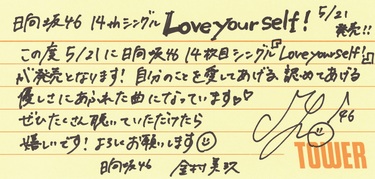 日向坂46 14thシングル Love your self! 5/21 発売!!
この度 5/21に日向坂46 14枚目シングル『Love yourself!』
が発売となります! 自分のことを愛してあげる、認めてあげる
優しさにあふれた曲になっています♡♡
ぜひたくさん聴いていただけたら
嬉しいです! よろしくお願いします☺
日向坂46 金村美玖
46
TOWER